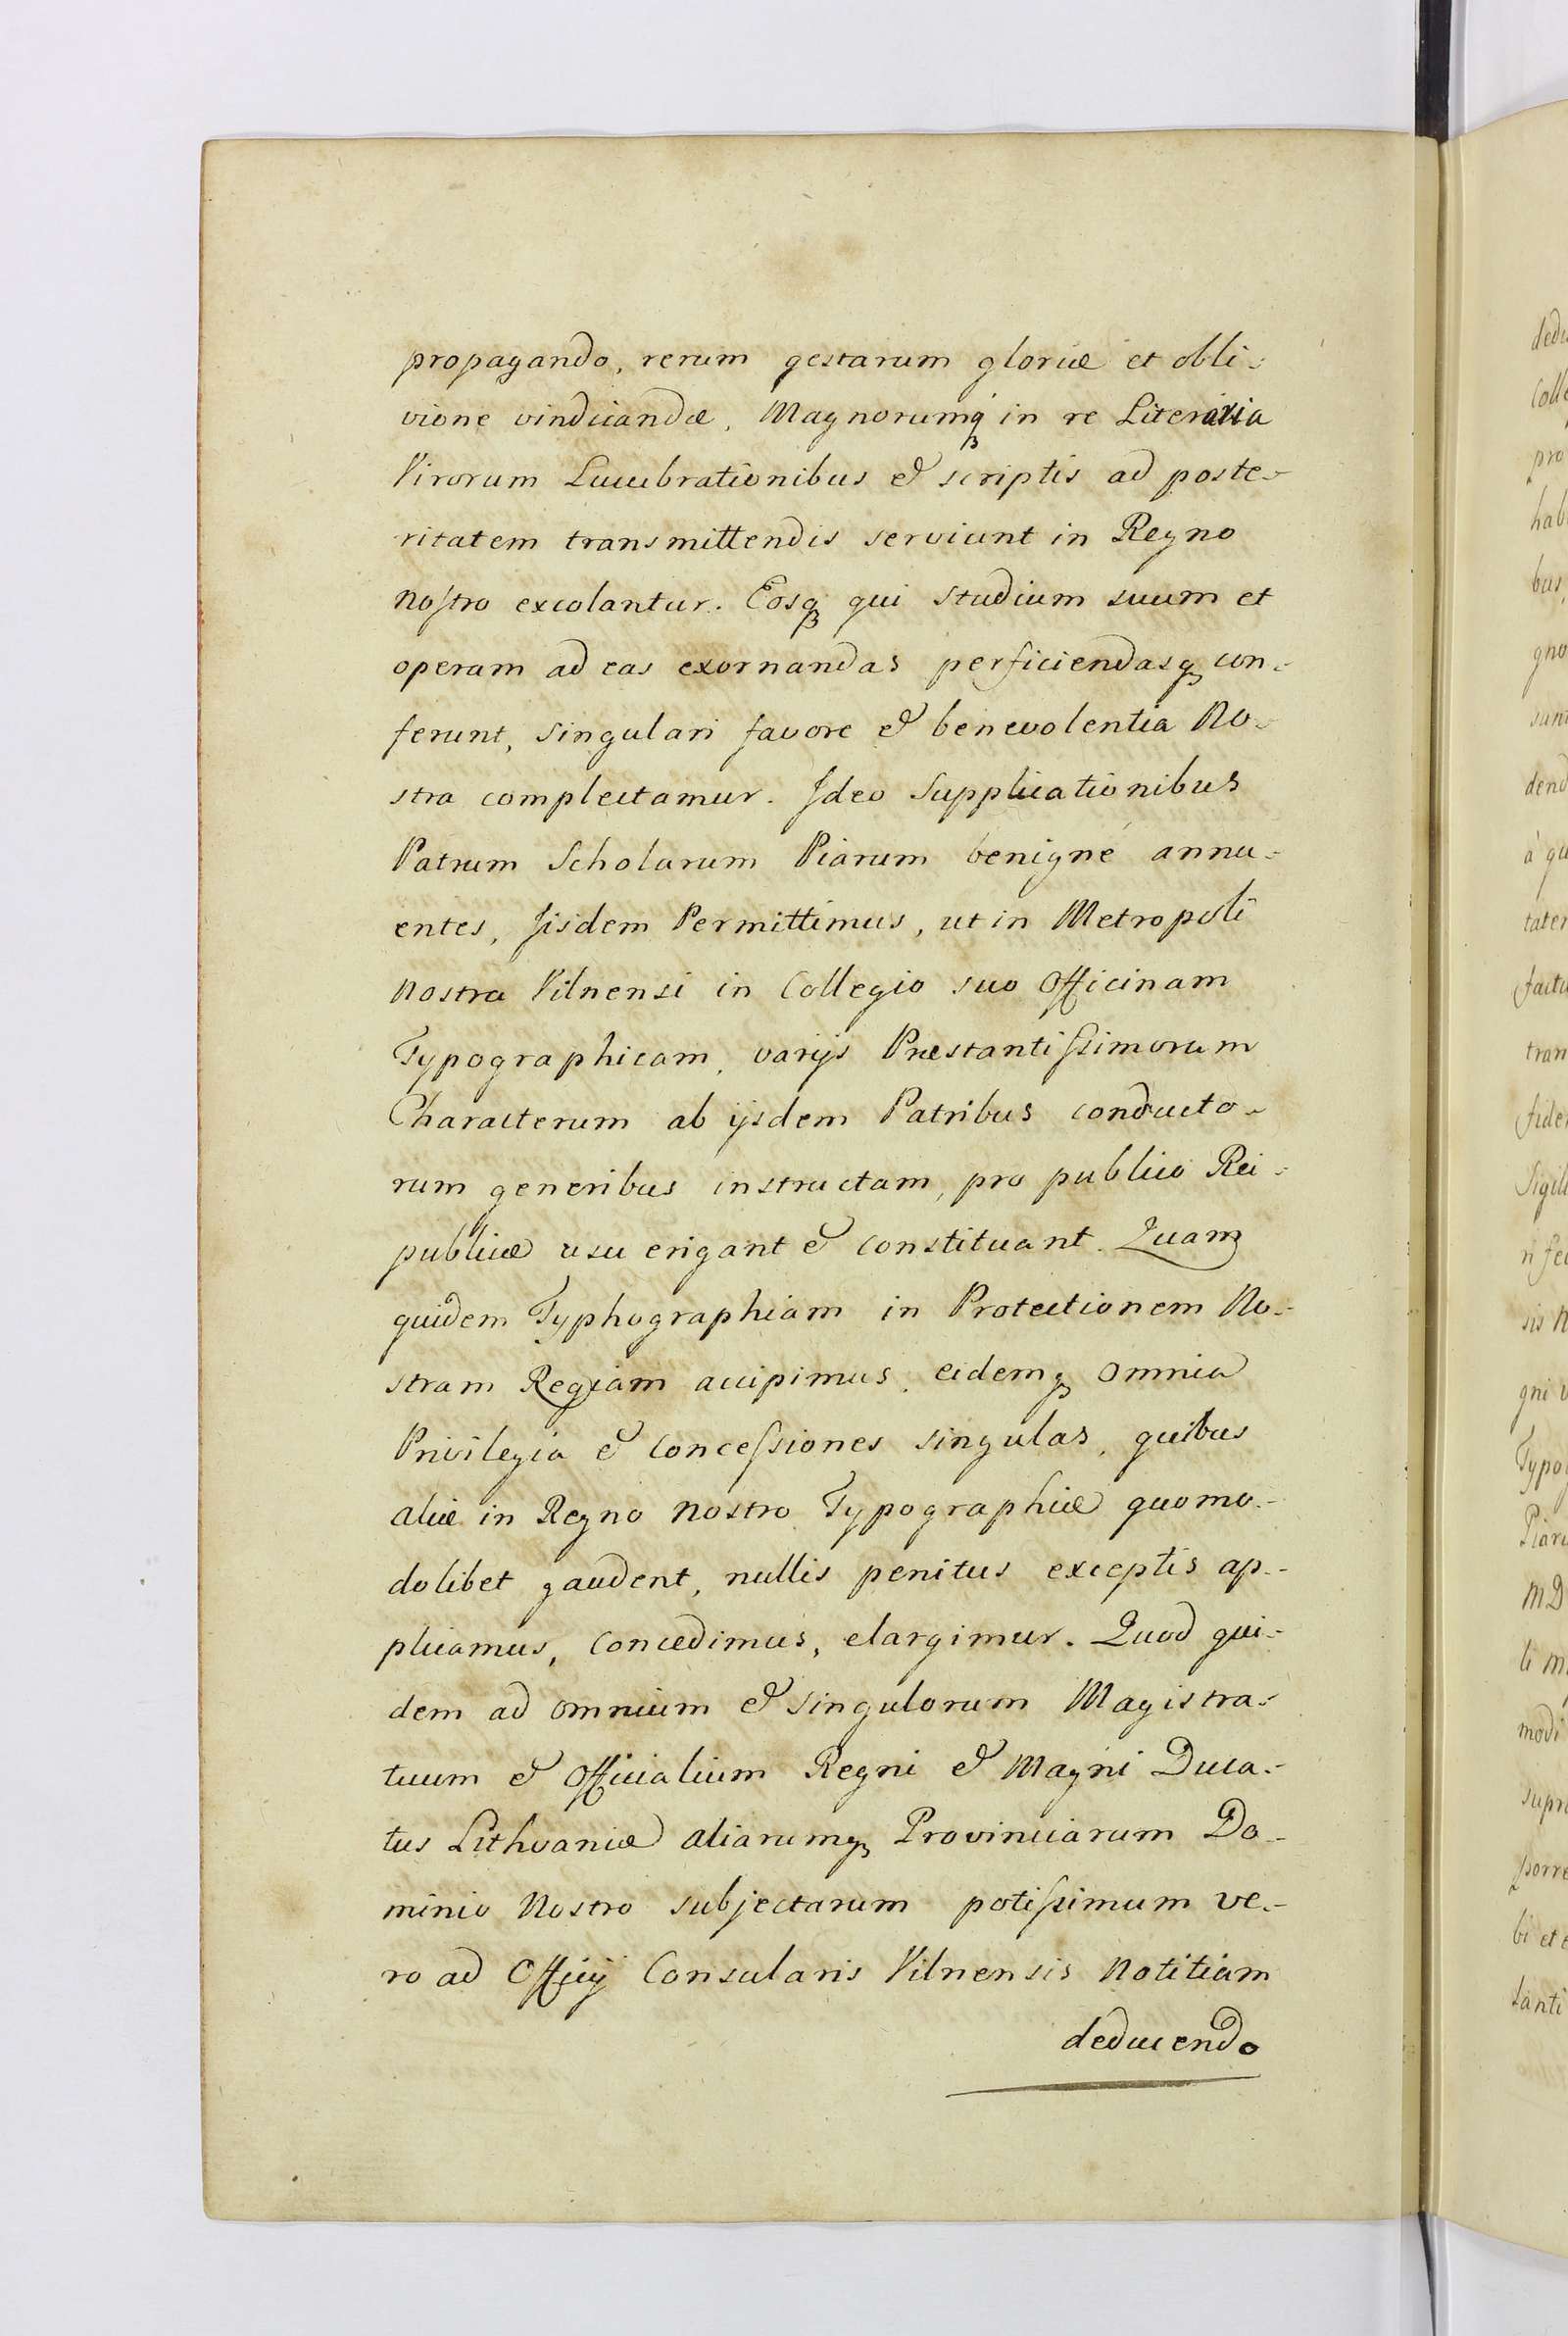 propagando, rerum gestarum gloriæ et obli-
vione vindicandæ, Magnorumq́ in re Literaria
Virorum Lucubrationibus & scriptis ad poste-
ritatem transmittendis serviunt in Regno
Nostro excolantur. Eosq qui studium suum et
operam ad eas exornandas perficiendasq con-
ferunt, singulari favore & benevolentia No-
stra complectamur. Ideo Supplicationibus
Patrum Scholarum Piarum benigné annu-
entes, Iisdem Permittimus, ut in Metropoli
Nostra Vilnensi in Collegio suo Officinam
Typographicam, varijs Præstantissimorum
Characterum ab ijsdem Patribus conducto-
rum generibus instructam, pro publico Rei-
publicæ usu erigant & constituant. Quam
quidem Typhographiam in Protectionem No-
stram Regiam accipimus, eidemq omnia
Privilegia & Concessiones singulas, quibus
aliæ in Regno Nostro Typographiæ quomo-
dolibet gaudent, nullis penitus exceptis ap-
plicamus, Concedimus, elargimur. Quod qui-
dem ad omnium & singulorum Magistra-
tuum & Officialium Regni & Magni Duca-
tus Lithvaniæ aliarumq Provinciarum Do-
minio Nostro subjectarum potissimum ve-
ro ad Officij Consularis Vilnensis Notitiam
deducendo